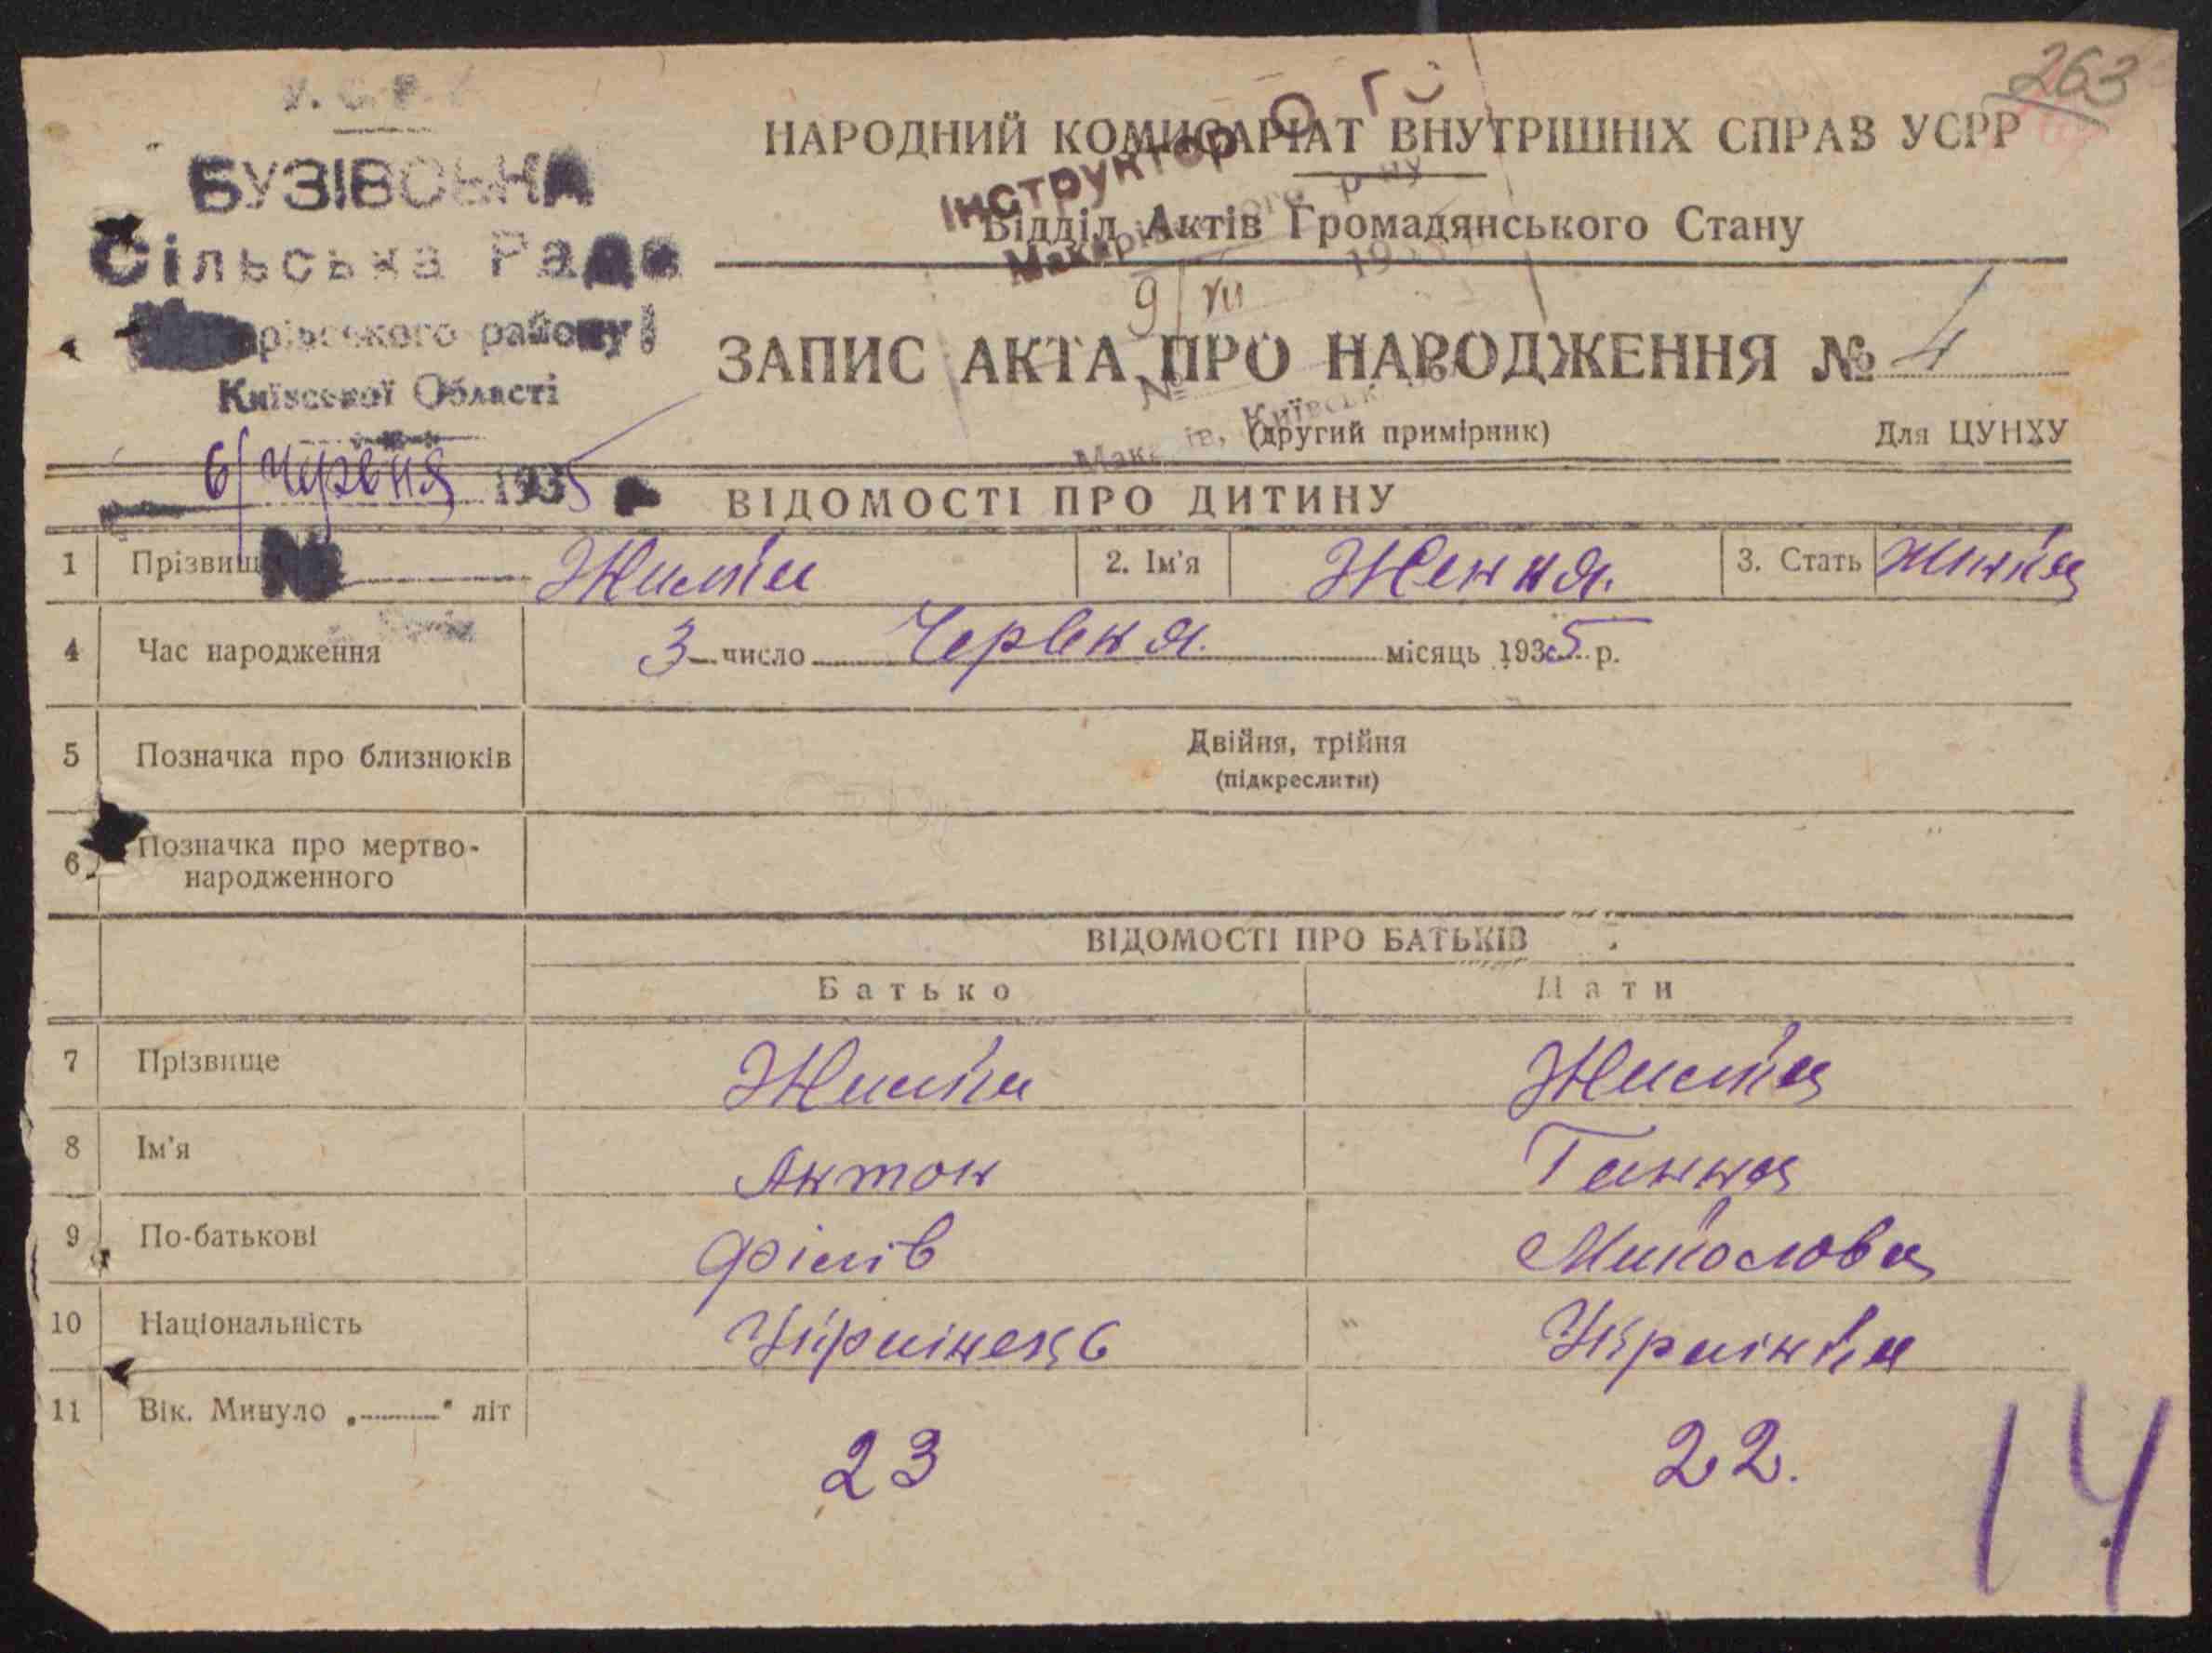 263
У. С. Р. Р.
БУЗІВСЬКА
Сільська Рада
району
Київської Області
6/Червня 1935
№
НАРОДНИЙ КОМИСАРІАТ ВНУТРІШНІХ СПРАВ УСРР
Інструктор
Відділ Актів Громадянського Стану
9/VII
ЗАПИС АКТА ПРО НАРОДЖЕННЯ № 4
№
(другий примірник) Для ЦУНХУ
ВІДОМОСТІ ПРО ДИТИНУ
1 Прізвище 2. Ім'я Ження. 3. Стать
4 Час народження 3 число Червня. місяць 1935 р.
5 Позначка про близнюків Двійня, трійня
(підкреслити)
6 Позначка про мертво-
народженного
ВІДОМОСТІ ПРО БАТЬКІВ
Батько Мати
7 Прізвище
8 Ім'я Антон Ганна
9 По-батькові Миколова
10 Національність Українець Українка
11 Вік. Минуло „ " літ 23 22.
14